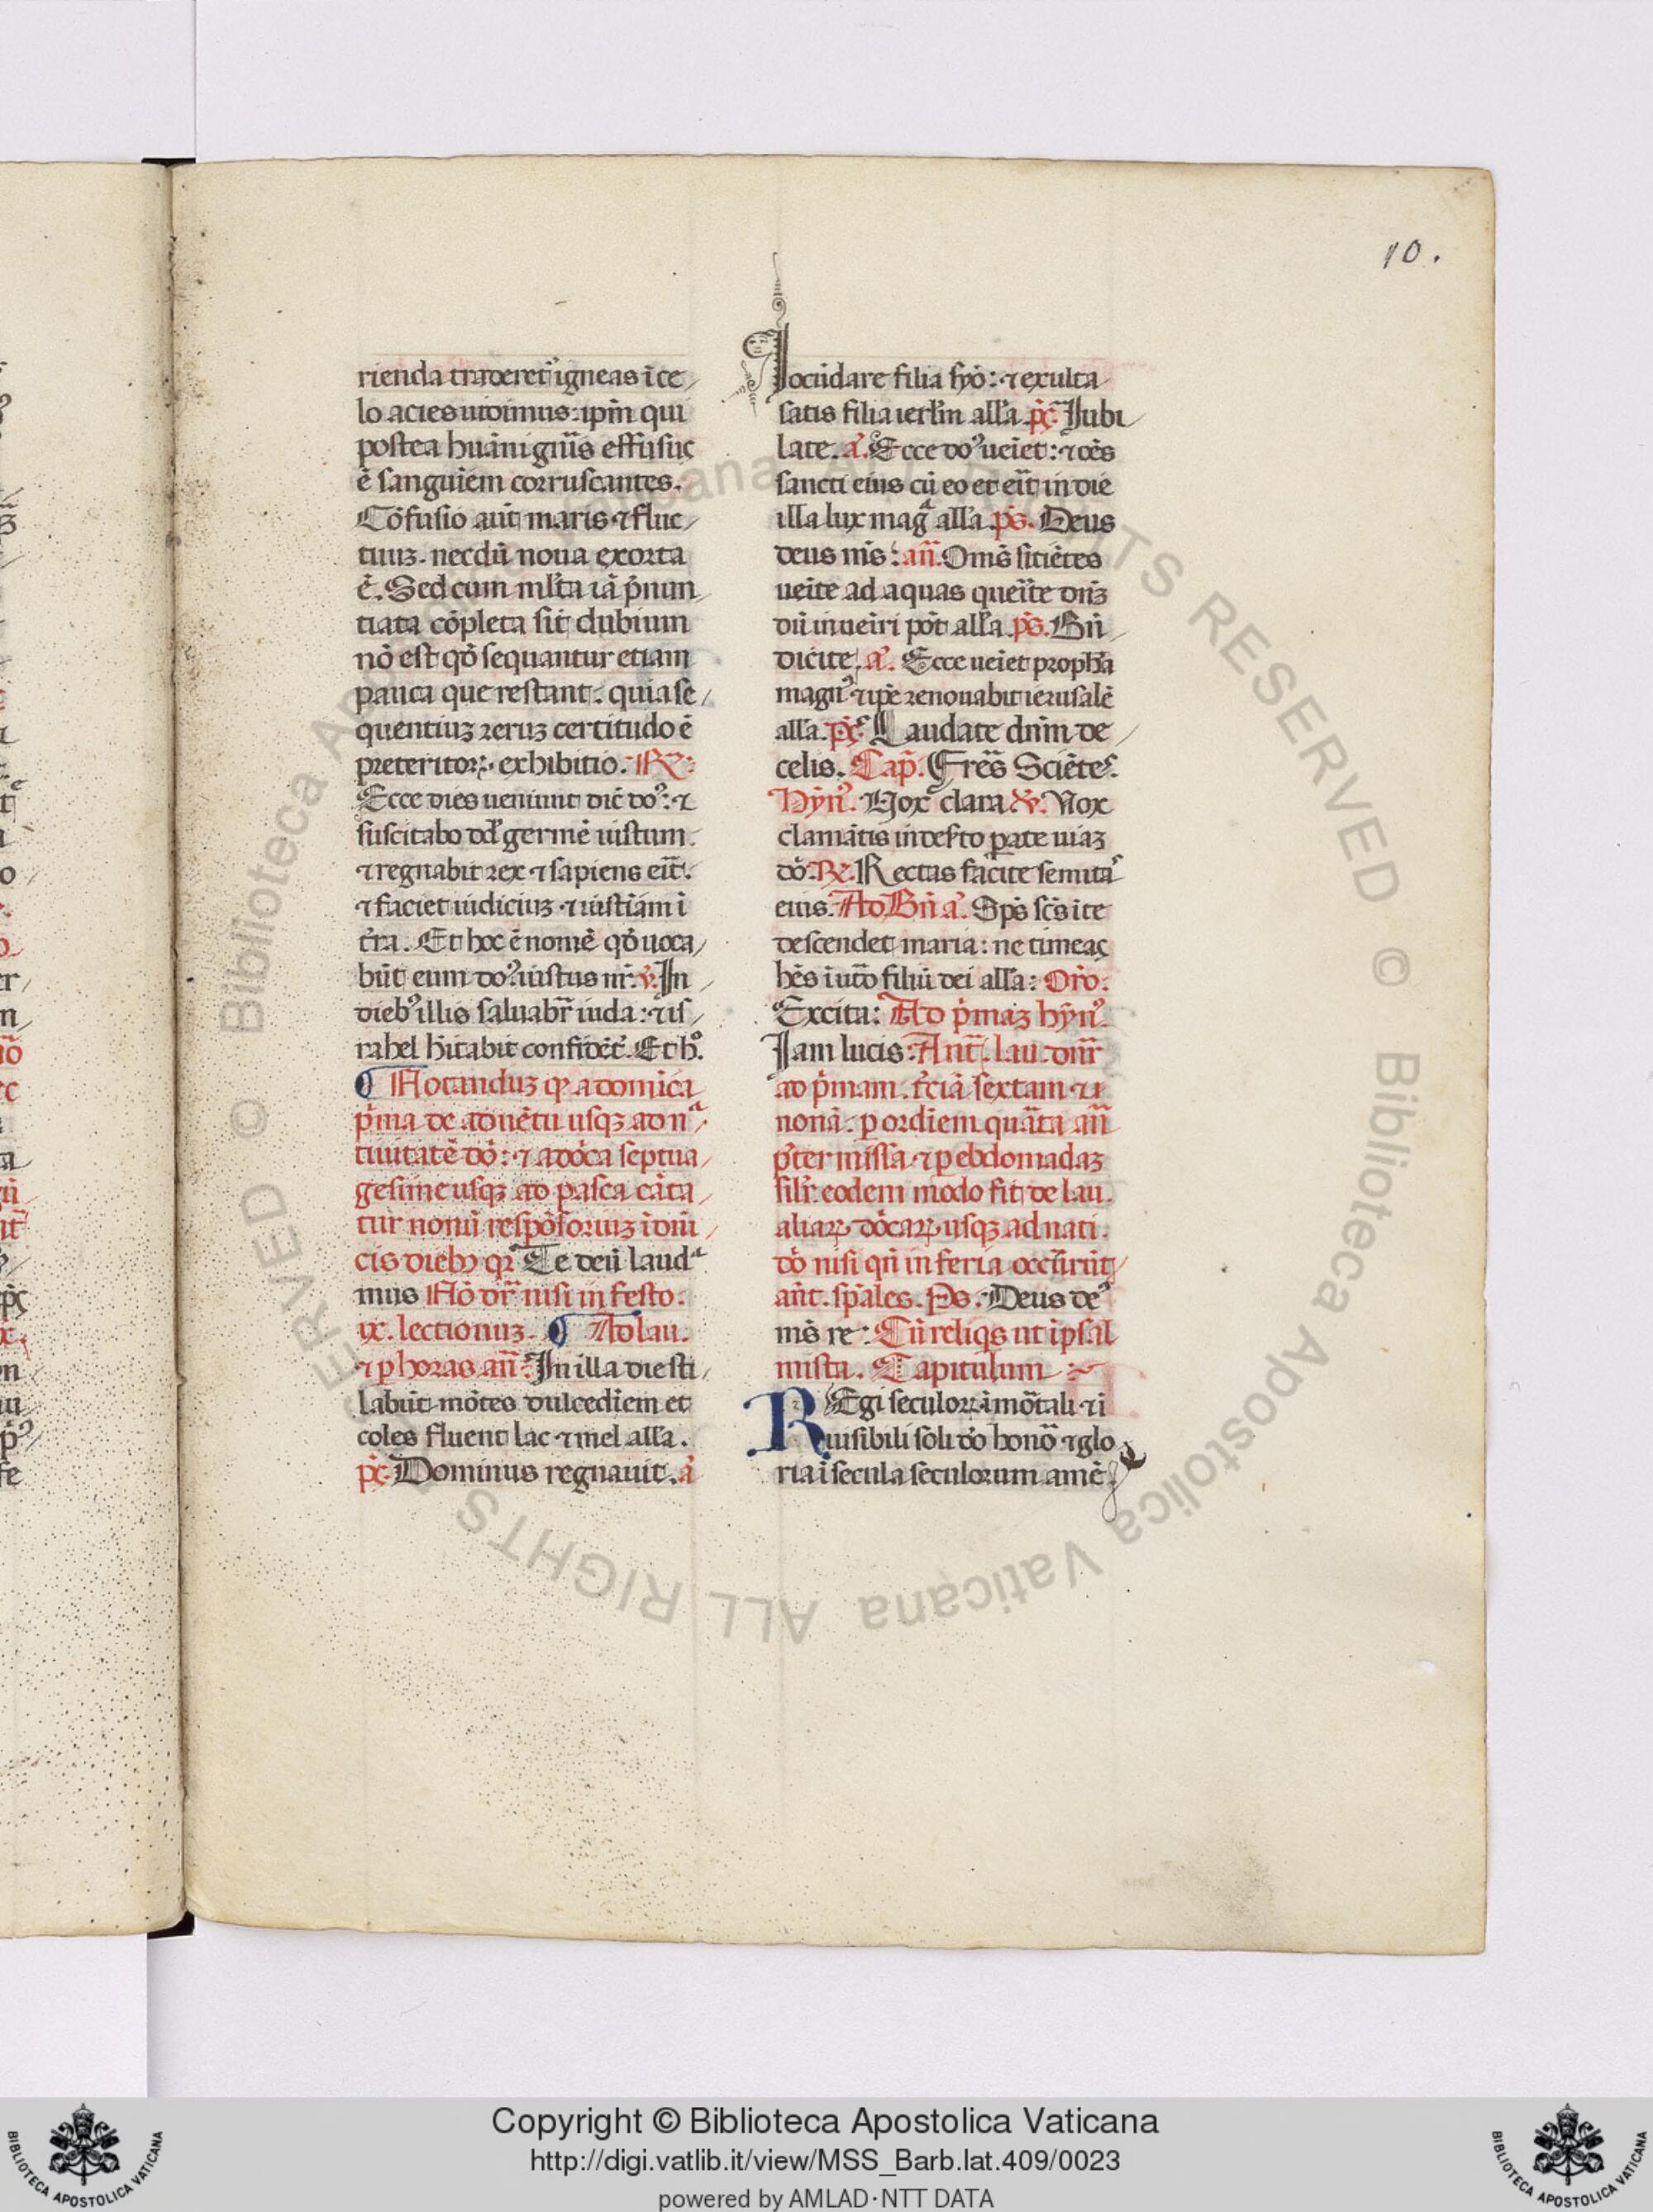 10.
rienda traderet᷑ igneas ī ce
lo acies uidimus: ip̄m qui
postea huāni gn̄is effusuç
ē sanguīem corruscantes.
Cōfusio aūt maris ⁊ fluc
tuuꝫ. necdū noua exorta
ē. Sed cum ml̄ta iā p̄nun
tiata cōpleta sit dubium
nō est qđ sequantur etiam
pauca que restant. quia se
quentiuꝫ reruꝫ certitudo ē
preteritoꝝ. exhibitio. R̄.
Ecce dies ueniunt dic̄ do᷒: ⁊
suscitabo dd̄ germē iustum.
⁊ regnabit rex ⁊ sapiens eīt.
⁊ faciet iudiciuꝫ ⁊ iustīam ī
t̄ra. Et hoc ē nomē qđ uoca
būt eum do᷒ iustus nr̄. v̄. In
dieb᷒ illis saluabr̄ iuda: ⁊ is
rahel hītabit confidēt᷑. Et hº.
¶ Notanduꝫ ꝙ a domīca
p̄ma de aduētu usqꝫ ad nª
tiuitatē dō: ⁊ a dōca septua
gesime usqꝫ ad pasca cāta
tur nonū respōsoriuꝫ ī dnī
cis dieb᷒ qr̄ Te deū laudª
mus Nō dr̄ nisi in festo.
ix. lectionuꝫ. ¶ Ad lau.
⁊ p horas an̄. In illa die sti
labūt mōtes dulcedīem et
coles fluent lac ⁊ mel all̄a.
p̄ç. Dominus regnauit. ā
Iocūdare filia syō: ⁊ exulta
satis filia ierl̄m all̄a. p̄ç. Iubi
late. ā. Ecce do᷒ ueīet: ⁊ oēs
sancti eius cū eo et eīt in die
illa lux magª all̄a. p̄s. Deus
deus ms̄: an̄. Omēs sitiētes
ueīte ad aquas querīte dn̄ꝫ
dū īueīri pōt all̄a. p̄s. Bn̄
dicite. ā. Ecce ueīet proph̄a
magn᷒ ⁊ ip̄e renouabit ierusalē
all̄a. p̄ç. Laudate dn̄m de
celis. Cap̄. Frēs Sciētes.
Hȳn᷒. Uox clara. v̄. Vox
clamātis in des̄to parate uiaꝫ
dō. R̄. Rectas facite semitas
eius. Ad Bn̄ ā. Sp̄s sc̄s ī te
descendet maria: ne timeaç
hēs ī ut̄o filiū dei all̄a: Or̄o.
Excita: Ad p̄maꝫ hȳn᷒.
Iam lucis: Ant̄. lau. dn̄r
ad p̄mam. t̄ciā sextam ⁊
nonā. p ordīem quārta an̄
p̄termissa ⁊ p ebdomadaꝫ
sil̄r. eodem modo fit de lau.
aliaꝝ dōcaꝝ usqꝫ ad nati.
dō nisi qn̄ in feria occūrūt
an̄t. sp̄ales. Ps. Deus de᷒
ms̄ re: Cū reliqs ut ī psal
mista. Capitulum
REgi seculoꝝ īmōtali ⁊ ī
uisibili soli dō honō ⁊ glo
ria ī secula seculorum amē.
© Biblioteca Apostolica Vaticana ALL RIGHTS RESERVED © Biblioteca Apostolica Vaticana ALL RIGHTS RESERVED
Copyright © Biblioteca Apostolica Vaticana
http://digi.vatlib.it/view/MSS_Barb.lat.409/0023
powered by AMLAD·NTT DATA
BIBLIOTECA APOSTOLICA VATICANA
BIBLIOTECA APOSTOLICA VATICANA